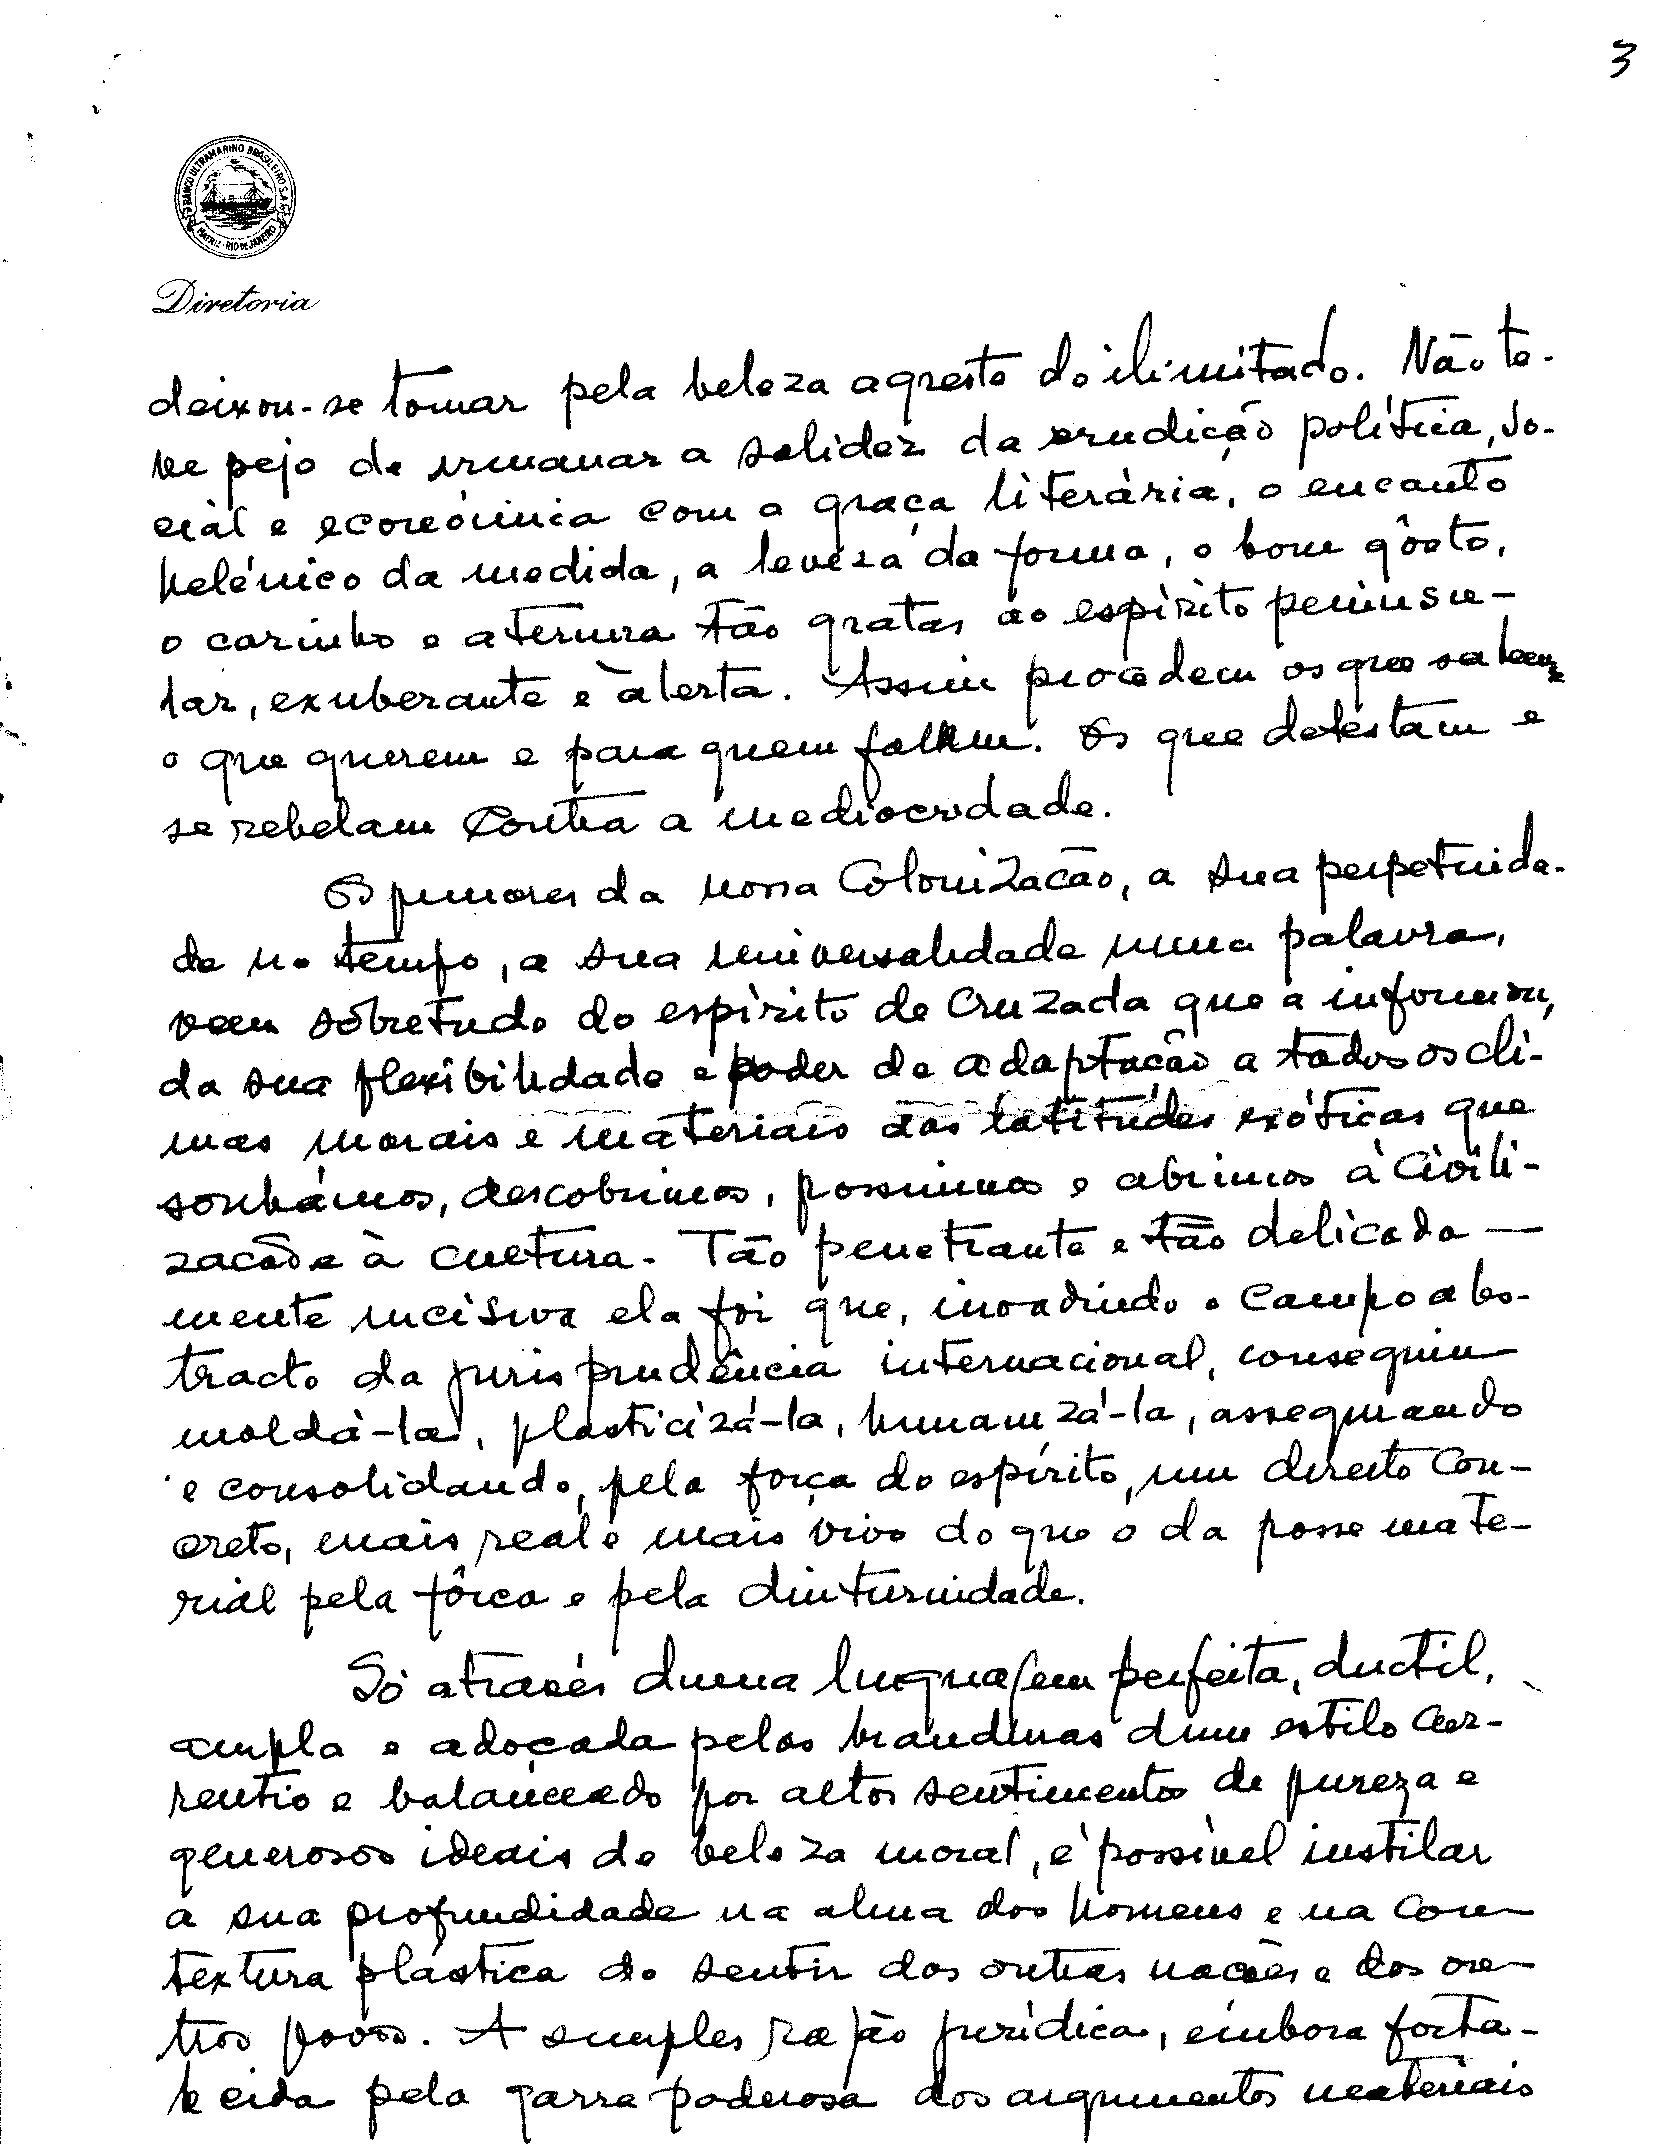 3
BANCO ULTRAMARINO BRASILEIRO S.A.
MATRIZ - RIO DE JANEIRO
Diretoria
deixou-se tomar pela beleza agreste do ilimitado. Não te-
ve pejo de irmanar a solidez da erudição política, so-
cial e económica com a graça literária, o encanto
helénico da medida, a leveza da forma, o bom gôsto,
o carinho e a ternura tão gratas ao espírito peninsu-
lar, exuberante e àlerta. Assim procedem os que sabem
o que querem e para quem falam. Os que detestam e
se rebelam contra a mediocridade.
Os primores da nossa Colonização, a sua perpetuida-
de no tempo, a sua universalidade numa palavra,
veem sôbretudo do espírito de Cruzada que a informou,
da sua flexibilidade e poder de adaptação a todos os cli-
mas morais e materiais das latitudes exóticas que
sonhámos, descobrimos, possuimos e abrimos à Civili-
zação e à cultura. Tão penetrante e tão delicada-
mente incisiva ela foi que, invadindo o campo abs-
tracto da jurisprudência internacional, conseguiu
moldá-la, plasticizá-la, humanizá-la, assegurando
e consolidando, pela força do espírito, um direito con-
creto, mais real e mais vivo do que o da posse mate-
rial pela fôrça e pela diuturnidade.
Só através duma linguagem perfeita, ductil,
ampla e adoçada pelas branduras dum estilo cor-
rentio e balanceado por altos sentimentos de pureza e
generosos ideais de beleza moral, é possível instilar
a sua profundidade na alma dos homens e na con-
textura plástica do sentir das outras nações e dos ou-
tros povos. A simples razão jurídica, embora forta-
lecida pela garra poderosa dos argumentos materiais